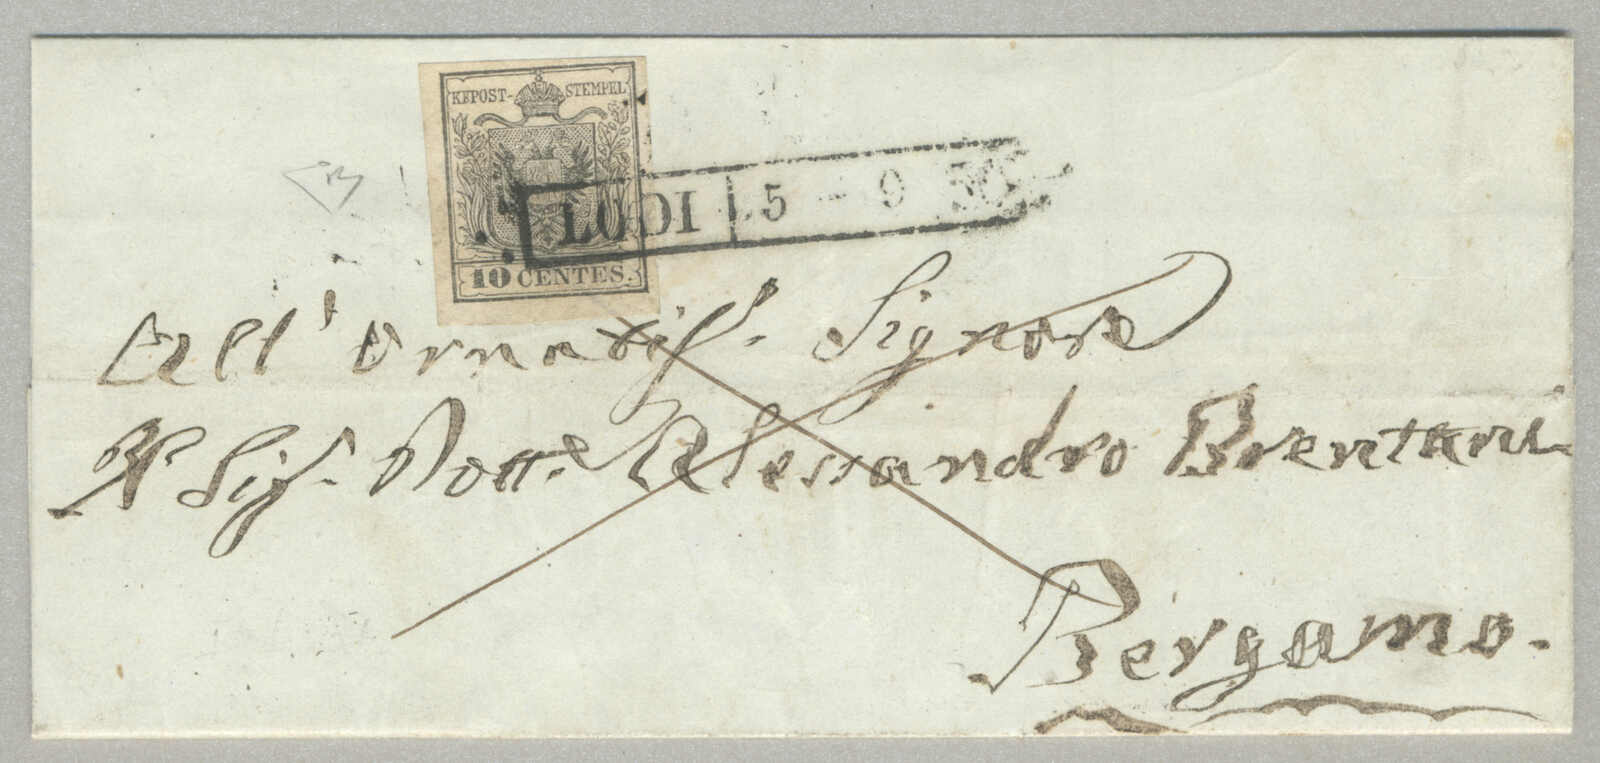 KKPOST-STEMPEL
10 CENTES.
LODI 5 - 9
All'ornatiss. Signore
Il Sigr. Dott. Alessandro Brentani
Bergamo.